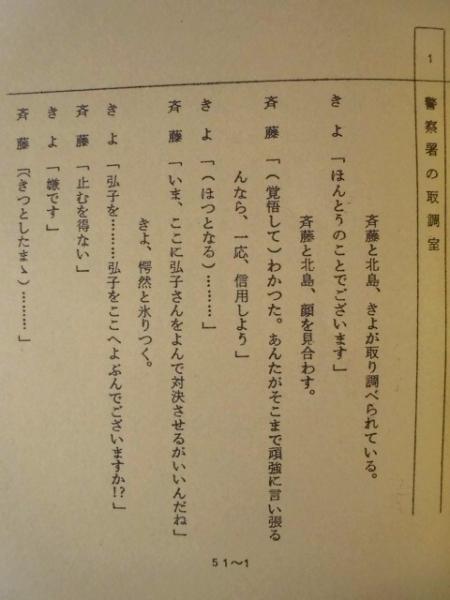 1 警察署の取調室
斉藤と北島、きよが取り調べられている。
きよ「ほんとうのことでございます」
斉藤と北島、顔を見合わす。
斉藤「(覚悟して)わかつた。あんたがそこまで頑強に言い張る
んなら、一応、信用しよう」
きよ「(ほつとなる)………」
斉藤「いま、ここに弘子さんをよんで対決させるがいいんだね」
きよ、愕然と氷りつく。
きよ「弘子を………弘子をここへよぶんでございますか!?」
斉藤「止むを得ない」
きよ「嫌です」
斉藤「(きつとしたまゝ)………」
51〜1